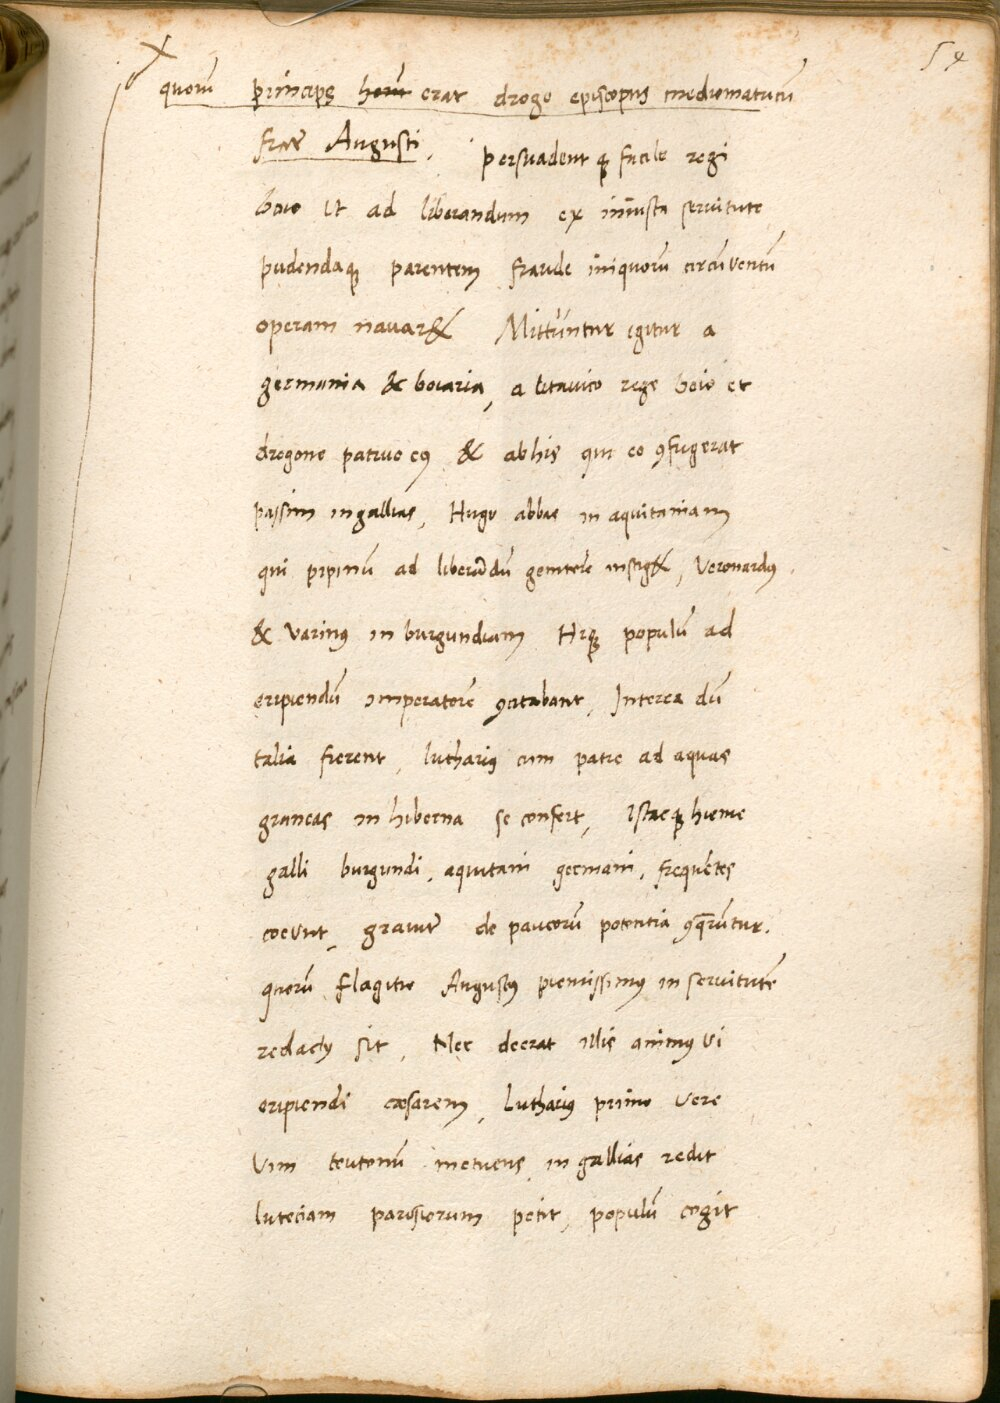 54
quorū princeps horū erat drogo episcopus mediomatricū
frater Augusti, persuadentq; facile regi
boio ut ad liberandum ex iniusta servitute
pudendaq; parentem fraude iniquorū circūventū
operam navaret Mittuntur igitur a
germania & boiaria, a litavico rege boio et
drogone patruo eꝰ & ab his qui eo ꝯfugerāt
passim in gallias, Hugo abbas in aquitaniam
qui pipinū ad liberādū genitorē instiget, Veronardꝰ
& Varinꝰ in burgundiam Hiq; populū ad
eripiendū imperatorē ꝯcitabant, Interea dū
talia fierent, lutharius cum patre ad aquas
graneas in hiberna se confert, Istacq; hieme
galli burgundi, aquitani germani, frequētes
coeunt, graviter de paucorū potentia ꝯquerūtur.
quorū flagitio Augustꝰ pientissimꝰ in servitutē
redactꝰ sit, Nec deerat illis animꝰ vi
eripiendi cæsarem, Lutharius primo vere
Vim teutonū metuens in gallias redit
luteciam parisiorum petit, populū cogit